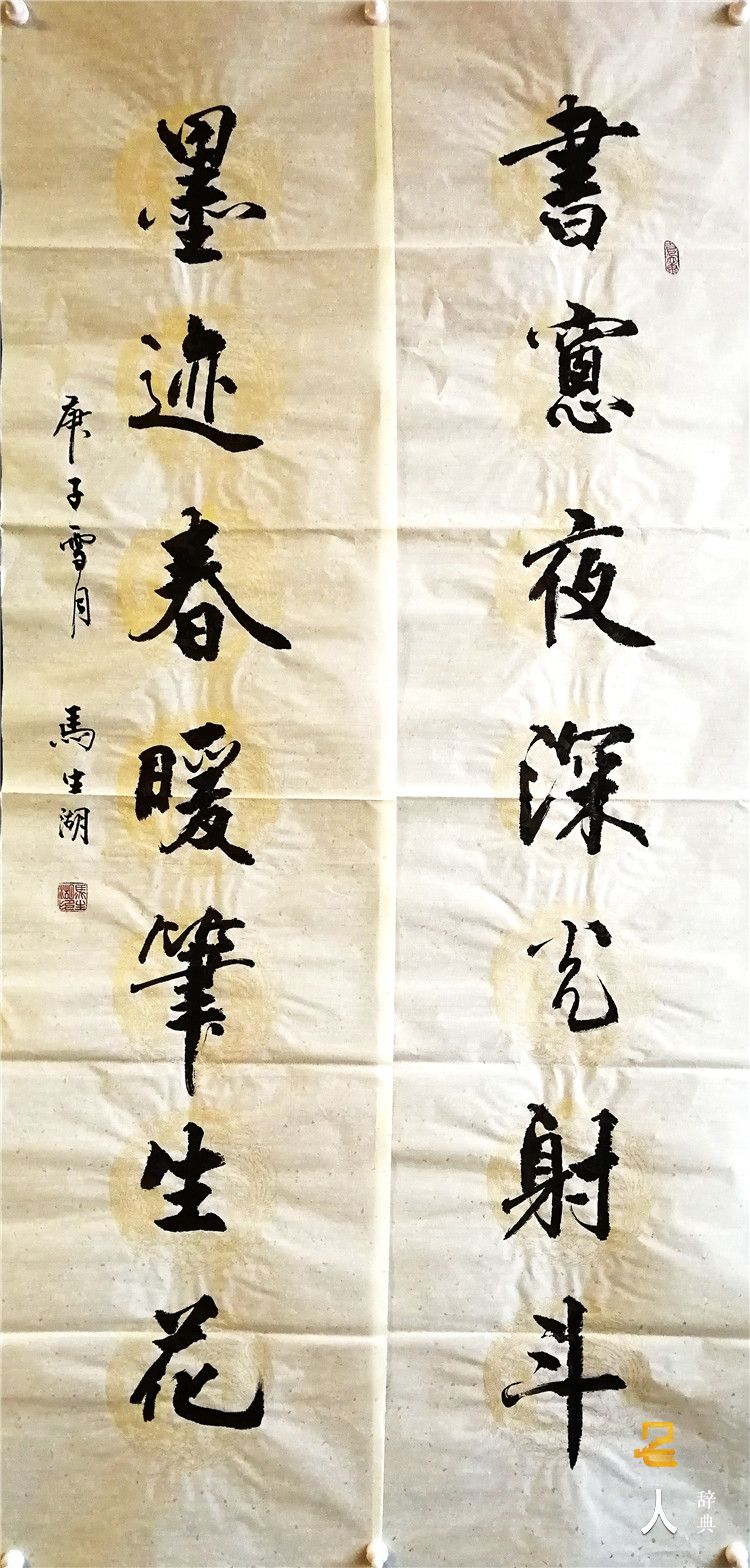 書窻夜深光射斗
墨迹春暖筆生花
庚子雪月 馬生湖
名人
辞典